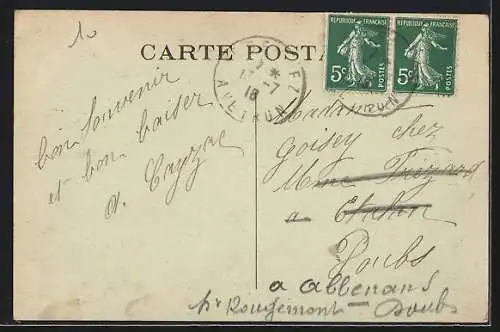 10
CARTE POSTA
REPUBLIQUE FRANÇAISE
5c
POSTES
REPUBLIQUE FRANÇAISE
5c
POSTES
17 -7
18
AVEYRON
bon souvenir
et bon baiser
d. Cayzac
Madame
Goisey chez
Mme
a
Doubs
a abbenans
pr Rougemont - Doubs